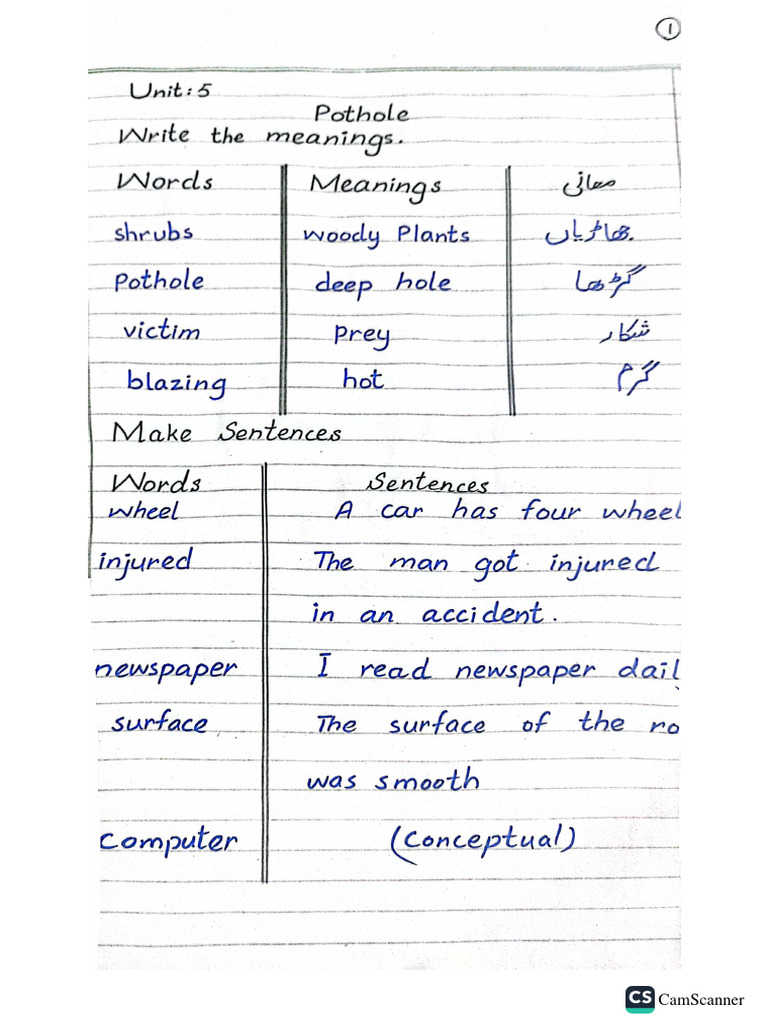 1
Unit: 5
Pothole
Write the meanings.
Words Meanings معانی
shrubs woody Plants جھاڑیاں
Pothole deep hole گڑھا
victim prey شکار
blazing hot گرم
Make Sentences
Words Sentences
wheel A car has four wheel
injured The man got injured
in an accident.
newspaper I read newspaper dail
surface The surface of the ro
was smooth
Computer (Conceptual)
CS CamScanner